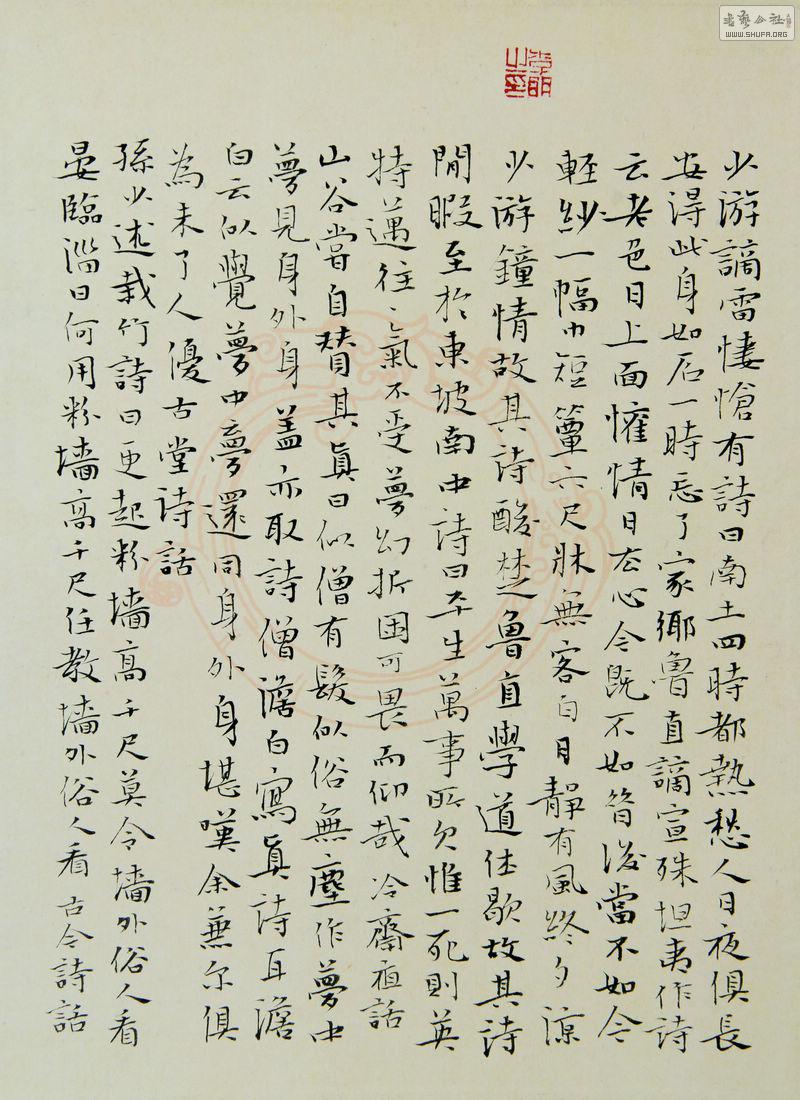 少游謫雷悽愴有詩曰南土四時都熱愁人日夜俱長
安得此身如石一時忘了家鄉魯直謫宜殊坦夷作詩
云老色日上面懽情日去心今既不如昔後當不如今
輕紗一幅巾短簟六尺牀無客白日靜有風終夕涼
少游鐘情故其詩酸楚魯直學道休歇故其詩
閒暇至於東坡南中詩曰平生萬事所欠惟一死則英
特邁往之氣不受夢幻折困可畏而仰哉冷齋夜話
山谷嘗自贊其真曰似僧有髮似俗無塵作夢中
夢見身外身蓋亦取詩僧澹白寫真詩耳澹
白云似覺夢中夢還同身外身堪嘆余兼尔俱
為未了人優古堂詩話
孫少述栽竹詩曰更起粉墻高千尺莫令墻外俗人看
晏臨淄曰何用粉墻高千尺任教墻外俗人看 古今詩話
书艺公社
WWW.SHUFA.ORG